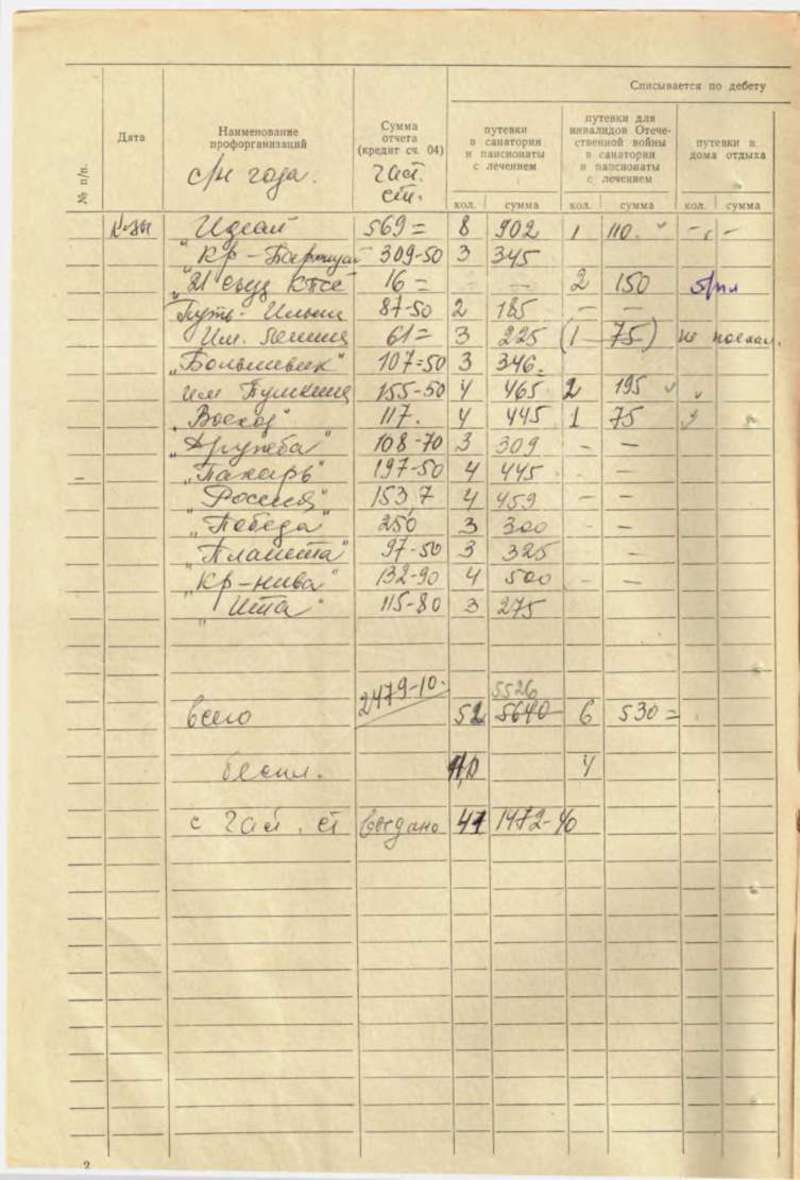 Списывается по дебету
№ п/п.
Дата
Наименование профорганизаций
с/н года.
Сумма отчета (кредит сч. 04)
ст.
путевки в санатории и пансионаты с лечением
путевки для инвалидов Отечественной войны в санатории и пансионаты с лечением
путевки в дома отдыха
кол. сумма кол. сумма кол. сумма
Идеал 569= 8 902 1 110. - -
"Кр-Партизан 309-50 3 345
"21 съезд КПСС" 16= - - 2 150
Путь Ильича 87-50 2 185 - -
Им. Ленина 61= 3 225 (1 75) не поехал.
"Большевик" 107=50 3 346.
им Пушкина 155-50 4 465 2 195
"Восход" 117. 4 445 1 75
"Дружба" 108-70 3 309 - -
"Пахарь" 197-50 4 445 - -
"Россия" 153,7 4 459 - -
"Победа" 250 3 300 - -
"Планета" 97-50 3 325 -
"Кр-нива" 132-90 4 500 - -
115-80 3 275
2479-10 5526
всего 52 5640 6 530=
беспл. 4
с ст 1472-40
2